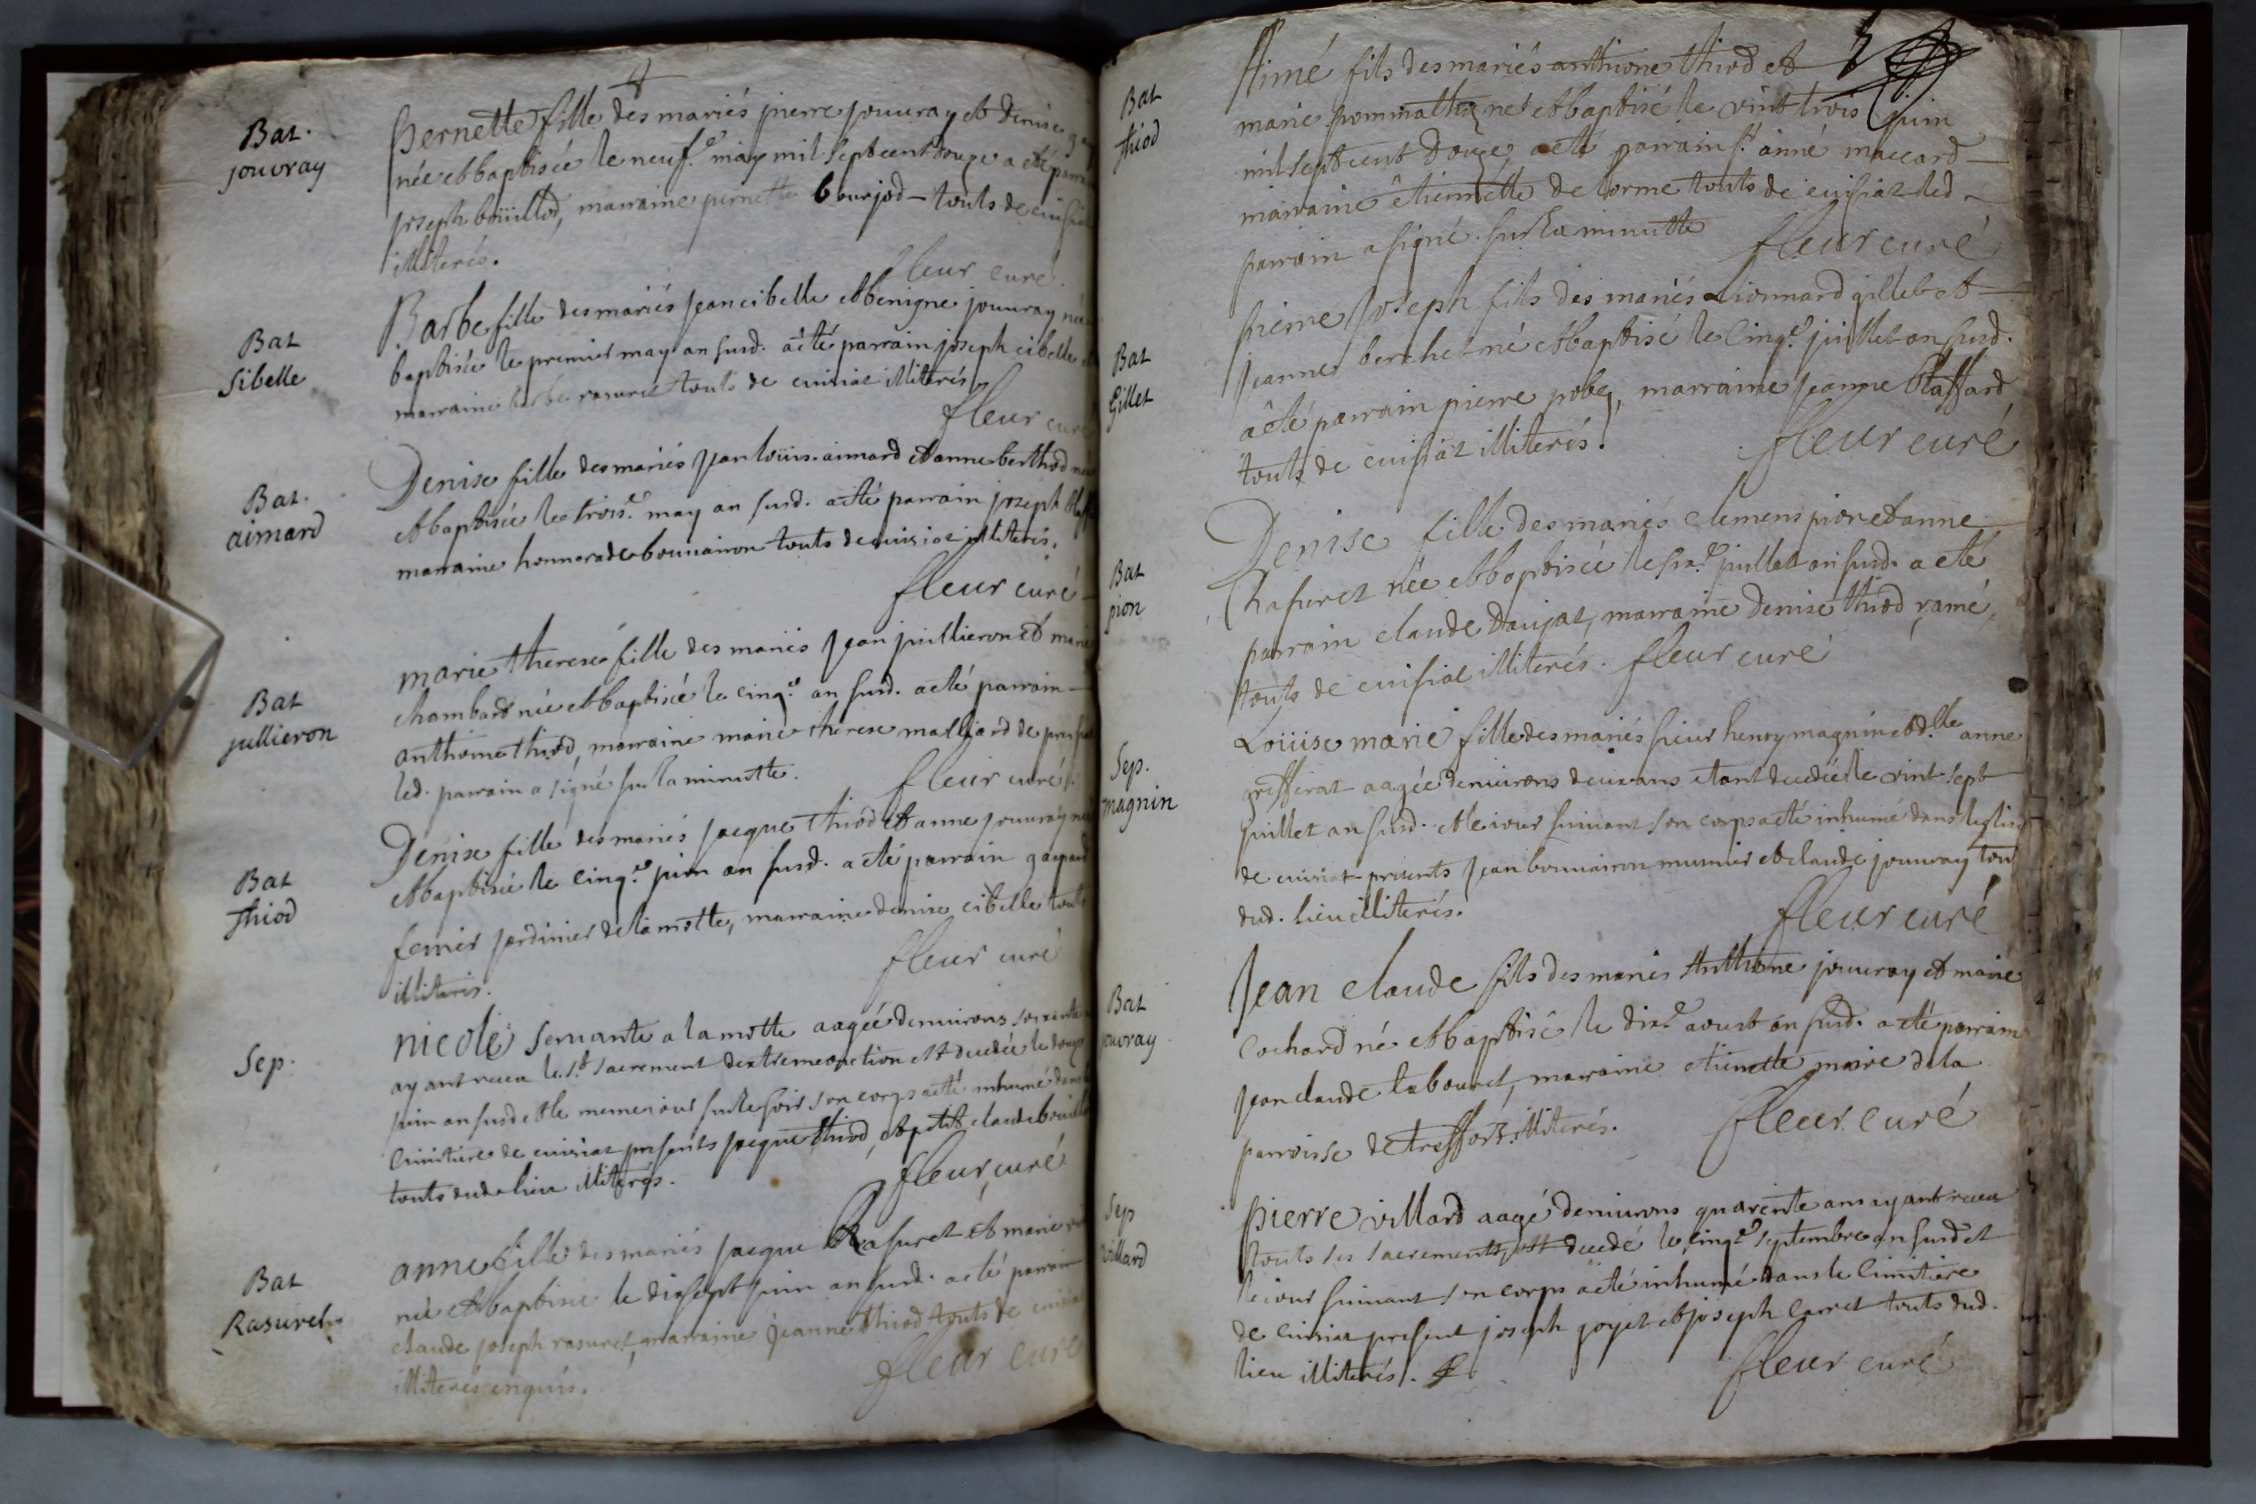 Bat.
jouvray
pernette fille des mariés pierre jouvray et denise
née et baptisée le neuf.e may mil sept cent douze a eté
joseph boüillod, marraine pernette bourjod – touts de
illiterés.
fleur curé
Bat
Sibelle
Barbe fille des mariés jean cibelle et benigne jouvray
baptisée le premier may an susd. a eté parrain joseph cibelle
marraine barbe rasuret touts de cuisiat illiterés
fleur curé
Bat.
aimard
Denise fille des mariés jean loüis aimard et anne berthod
et baptisée le trois.e may an susd. a eté parrain joseph
marraine honnorade bonnairon touts de cuisiat illiterés.
fleur curé
Bat
jullieron
marie therese fille des mariés jean juillieron et marie
chambard née et baptisée le cinq.e an susd. a eté parrain
anthoine thiod, marraine marie therese malliard de
led. parrain a signé sur la minutte.
fleur curé
Bat
thiod
Denise fille des mariés jacque thiod et anne jouvray
et baptisée le cinq.e juin an susd. a eté parrain gaspard
ferrier jardinier de la motte, marraine denise cibelle touts
illiterés.
fleur curé
Sep.
nicole servante a la motte aagée denvirons soixante
ayant receu le s.t sacrement dextremeonction est decedée le douze
juin an susd et le meme jour sur le soir son corps a eté inhumé dans
cimitiere de cuisiat presents jacque thiod, et petit claude
touts dud. lieu illiterés.
fleur curé
Bat
Rasuret
anne fille des mariés jacque Rasuret et marie
née et baptisée le dixsept juin an susd. a eté parrain
claude joseph rasuret, marraine jeanne thiod touts de cuisiat
illiterés enquis.
fleur curé
5
Bat
thiod
Aimé fils des mariés anthione thiod et
marie pommathy né et baptisé le vint trois juin
mil sept cent douze, a eté parrain s.r aimé maccard
marraine étiennette de lorme touts de cuisiat led
parrain a signé sur la minutte
fleur curé
Bat
Gillet
pierre joseph fils des mariés lionnard gillet et
jeanne berchet né et baptisé le cinq.e juillet an susd.
a eté parrain pierre pobel, marraine jeanne blaffard
touts de cuisiat illiterés.
fleur curé
Bat
pion
Denise fille des mariés clemens pion et anne
Rasuret née et baptisée le six.e juillet an susd. a eté
parrain claude Daujat, marraine denise thiod ramé,
touts de cuisiat illiterés. fleur curé
Sep.
magnin
Loüise marie fille des mariés sieur henry magnin et d.lle anne
greffirat aagée denvirons deux ans etant decedée le vint sept
juillet an susd. et le jour suivant son corps a eté inhumé dans leglise
de cuisiat presents jean bonnairon munier et claude jouvray
dud. lieu illiterés.
fleur curé
Bat
jouvray
Jean claude fils des mariés Anthione jouvray et marie
cochard né et baptisé le dix.e aoust an susd. a eté parrain
jean claude tabouret, marraine etiennette maire de la
parroisse de treffort illiterés.
fleur curé
Sep
villard
pierre villard aagé denvirons quarente ans ayant receu
touts ses sacrements, est decedé le cinq.e septembre an susd et
le jour suivant son corps a eté inhumé dans le cimitiere
de cuisiat present joseph goyet et joseph carret touts dud.
lieu illiterés.
fleur curé